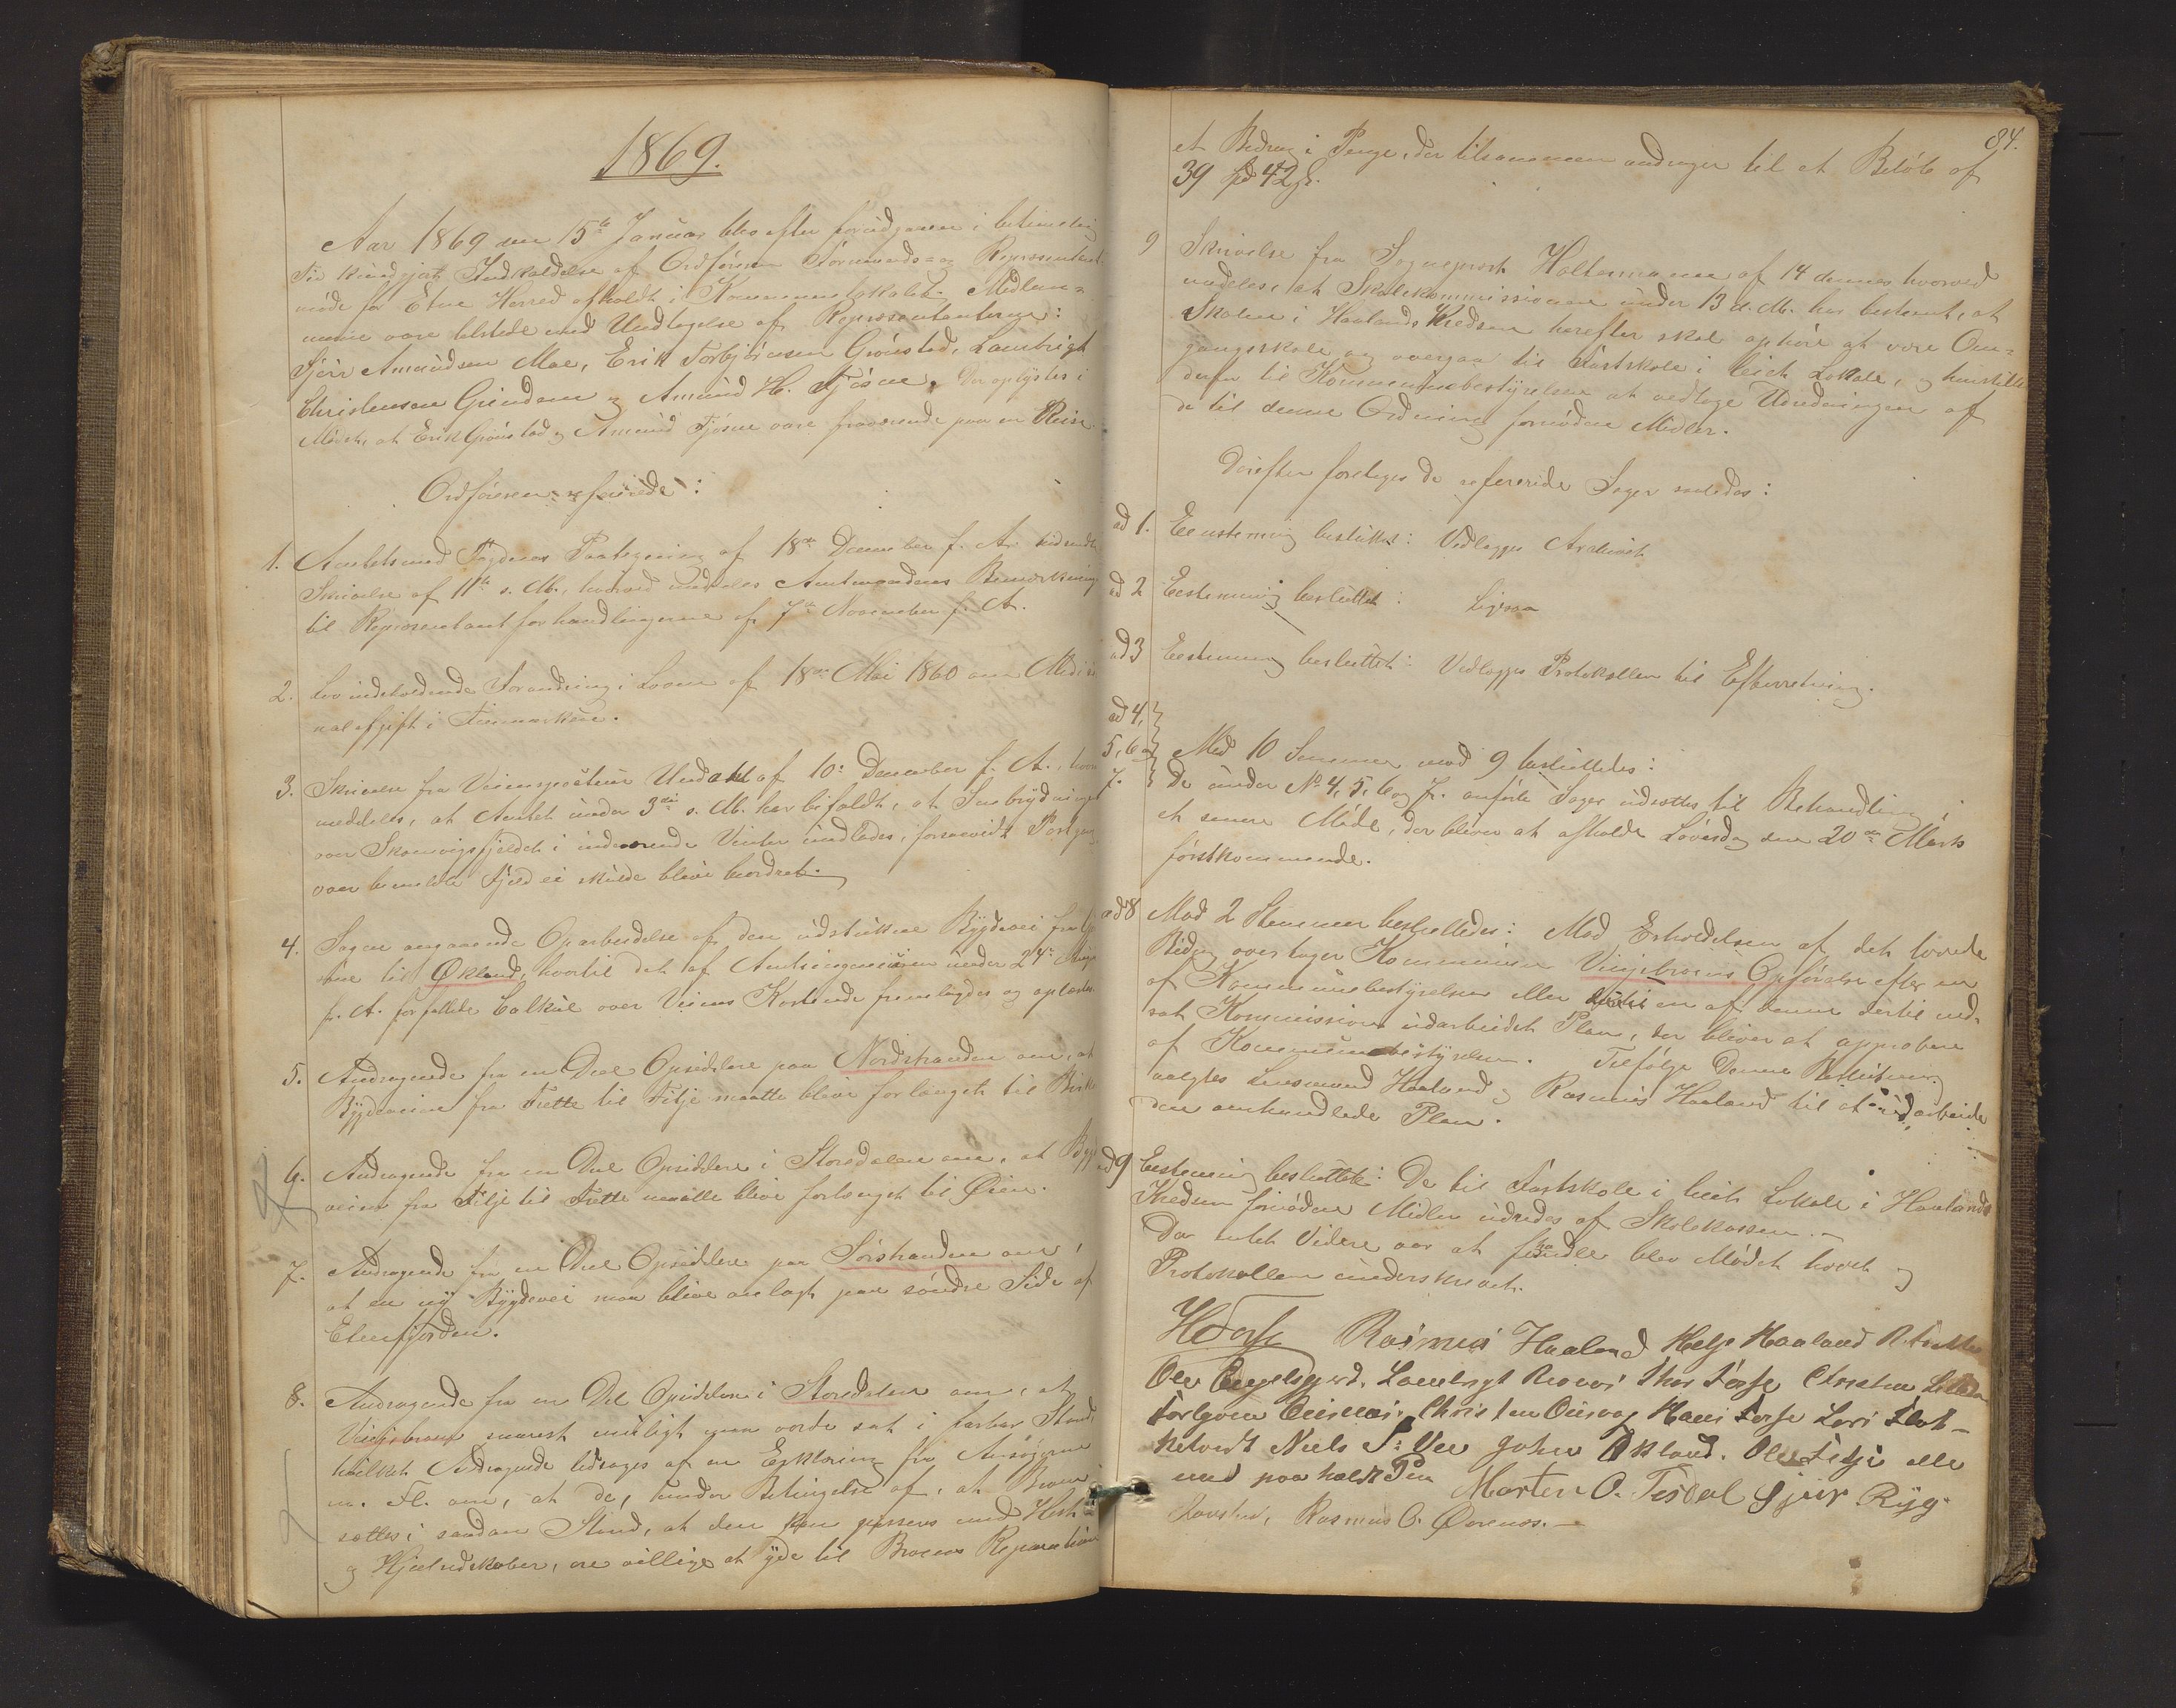 1869.
Aar 1869 den 15de Januar blev efter forudgaaen i betimelig
Tid kundgjort Indkaldelse af Ordføreren Formands og Repræsentant
møde for Etne Herred afholdt i Kommunelokalet. Medlem-
merne vare tilstede med Undtagelse af Repræsentanterne:
Sjur Amundsen Moe, Erik Torbjörnsen Grönstad, Lambrigt
Christensen Grindem og Amund H. Fjösne. Der oplystes i
Mödet, at Erik Grönstad og Amund Fjösne vare fraværende paa en Reise.
Ordföreren refererede:
1. Amtets med Fogdens Paategning af 18de December f. A. tilsendte
Skrivelse af 11te s. M., hvorved meddeles Amtmandens Bemærkning
til Repræsentantforhandlingerne af 7de November f. A.
2. Lov indeholdende Forandring i Loven af 18de Mai 1860 om Medici
nalafgift i Finmarken.
3. Skrivelse fra Veiinspecteur Undahl af 10de December f. A., hvori
meddeles, at Amtet under 3die s. M. har bifaldt, at Snebrydninget
over Skarvigsfjeldet i indeværende Vinter undlades, forsaavidt Postgang
over bemeldte Fjeld ei skulde blive beordret.
4. Sagen angaaende Oparbeidelse af den udstukne Bygdevei fra
til Økland, hvortil det af Amtsingeniören under 24de
f. A. forfattede Calkül over Veiens Kostende fremlagdes og oplæstes.
5. Andragende fra en Deel Opsiddere paa Nordstranden om, at
Bygdeveien fra Frette til Fitje maatte blive forlænget til
6. Andragende fra en Deel Opsiddere i Stordalen om, at Bygde
veien fra Fitje til Frette maatte blive forlænget til Øien.
7. Andragende fra en Deel Opsiddere paa Sörstranden om,
at en ny Bygdevei maa blive anlagt paa søndre Side af
Etnefjorden.
8. Andragende fra en Del Opsiddere i Stordalen om, at
Vinjebroen snarest muligt maa vorde sat i farbar Stand
hvilket Andragende ledsages af en Erklæring fra Ansøgerne
m. Fl. om, at de, under Betingelse af, at Broen
sættes i saadan Stand, at den kan passeres med Hest
og Hjuludskaber, ere villige at yde til Broens Reparation
84.
et Bidrag i Penge, der tilsammen andrager til et Belöb af
39 Spd 42 s.
9 Skrivelse fra Sogneprest Haltermann af 14 dennes hvorved
meddeles, at Skolekommissionen under 13 d. M. har bestemt, at
Skolen i Haalands Kredsen herefter skal ophöre at være Om-
gangsskole og overgaa til Fastskole i leiet Lokale, og henstilles
derfor til Kommunebestyrelsen at vedtage Udredningen af
de til denne Ordning fornödne Midler.
Derefter foretoges de refererede Sager saaledes:
ad 1. Eenstemmig besluttet: Vedlægges Archivet
ad 2 Eestemmig besluttet: Ligesaa
ad 3 Eestemmig besluttet: Vedlægges Protokollen til Efterretning.
ad 4,
5, 6 og
7. Med 10 Stemmer mod 9 besluttedes:
De under No 4, 5, 6 og 7. anförte Sager udsættes til Behandling i
et senere Möde, der bliver at afholde Löverdag den 20de Marts
førstkommende.
ad 8 Mod 2 Stemmer besluttedes: Mod Erholdelsen af det lovede
Bidrag overtager Kommunen Vinjebroens Opförelse efter en
af Kommunebestyrelsen eller en af denne dertil ned-
sat Kommission udarbeidet Plan, der bliver at approbere
af Kommunebestyrelsen. Tilfølge denne Beslutning
valgtes Lensmand Haaland og Rasmus Haaland til at udarbeide
den omhandlede Plan.
ad 9 Eestemmig besluttet: De til Fastskole i leiet Lokale i Haalands
Kredsen fornödne Midler udredes af Skolekassen.
Da intet Videre var at forhandle blev Mødet hævet og
Protokollen underskrevet.
Rasmus Haaland Helje Haaland
Ole Lambrigt Thor Christen
Torbjørn Christen Hans Lars
Niels S. Vee John Økland. Ole Fitje alle
med paaholdt Pen Morten O. Tesdal Sjur Ryg
Rasmus O. Ørenæs.